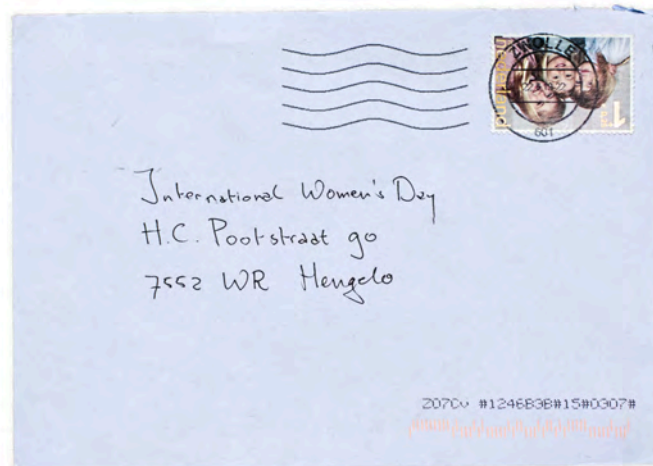 ZWOLLE
Nederland
1
601
International Women's Day
H.C. Pootstraat 90
7552 WR Hengelo
207Cv #1246B3B#15#0307#